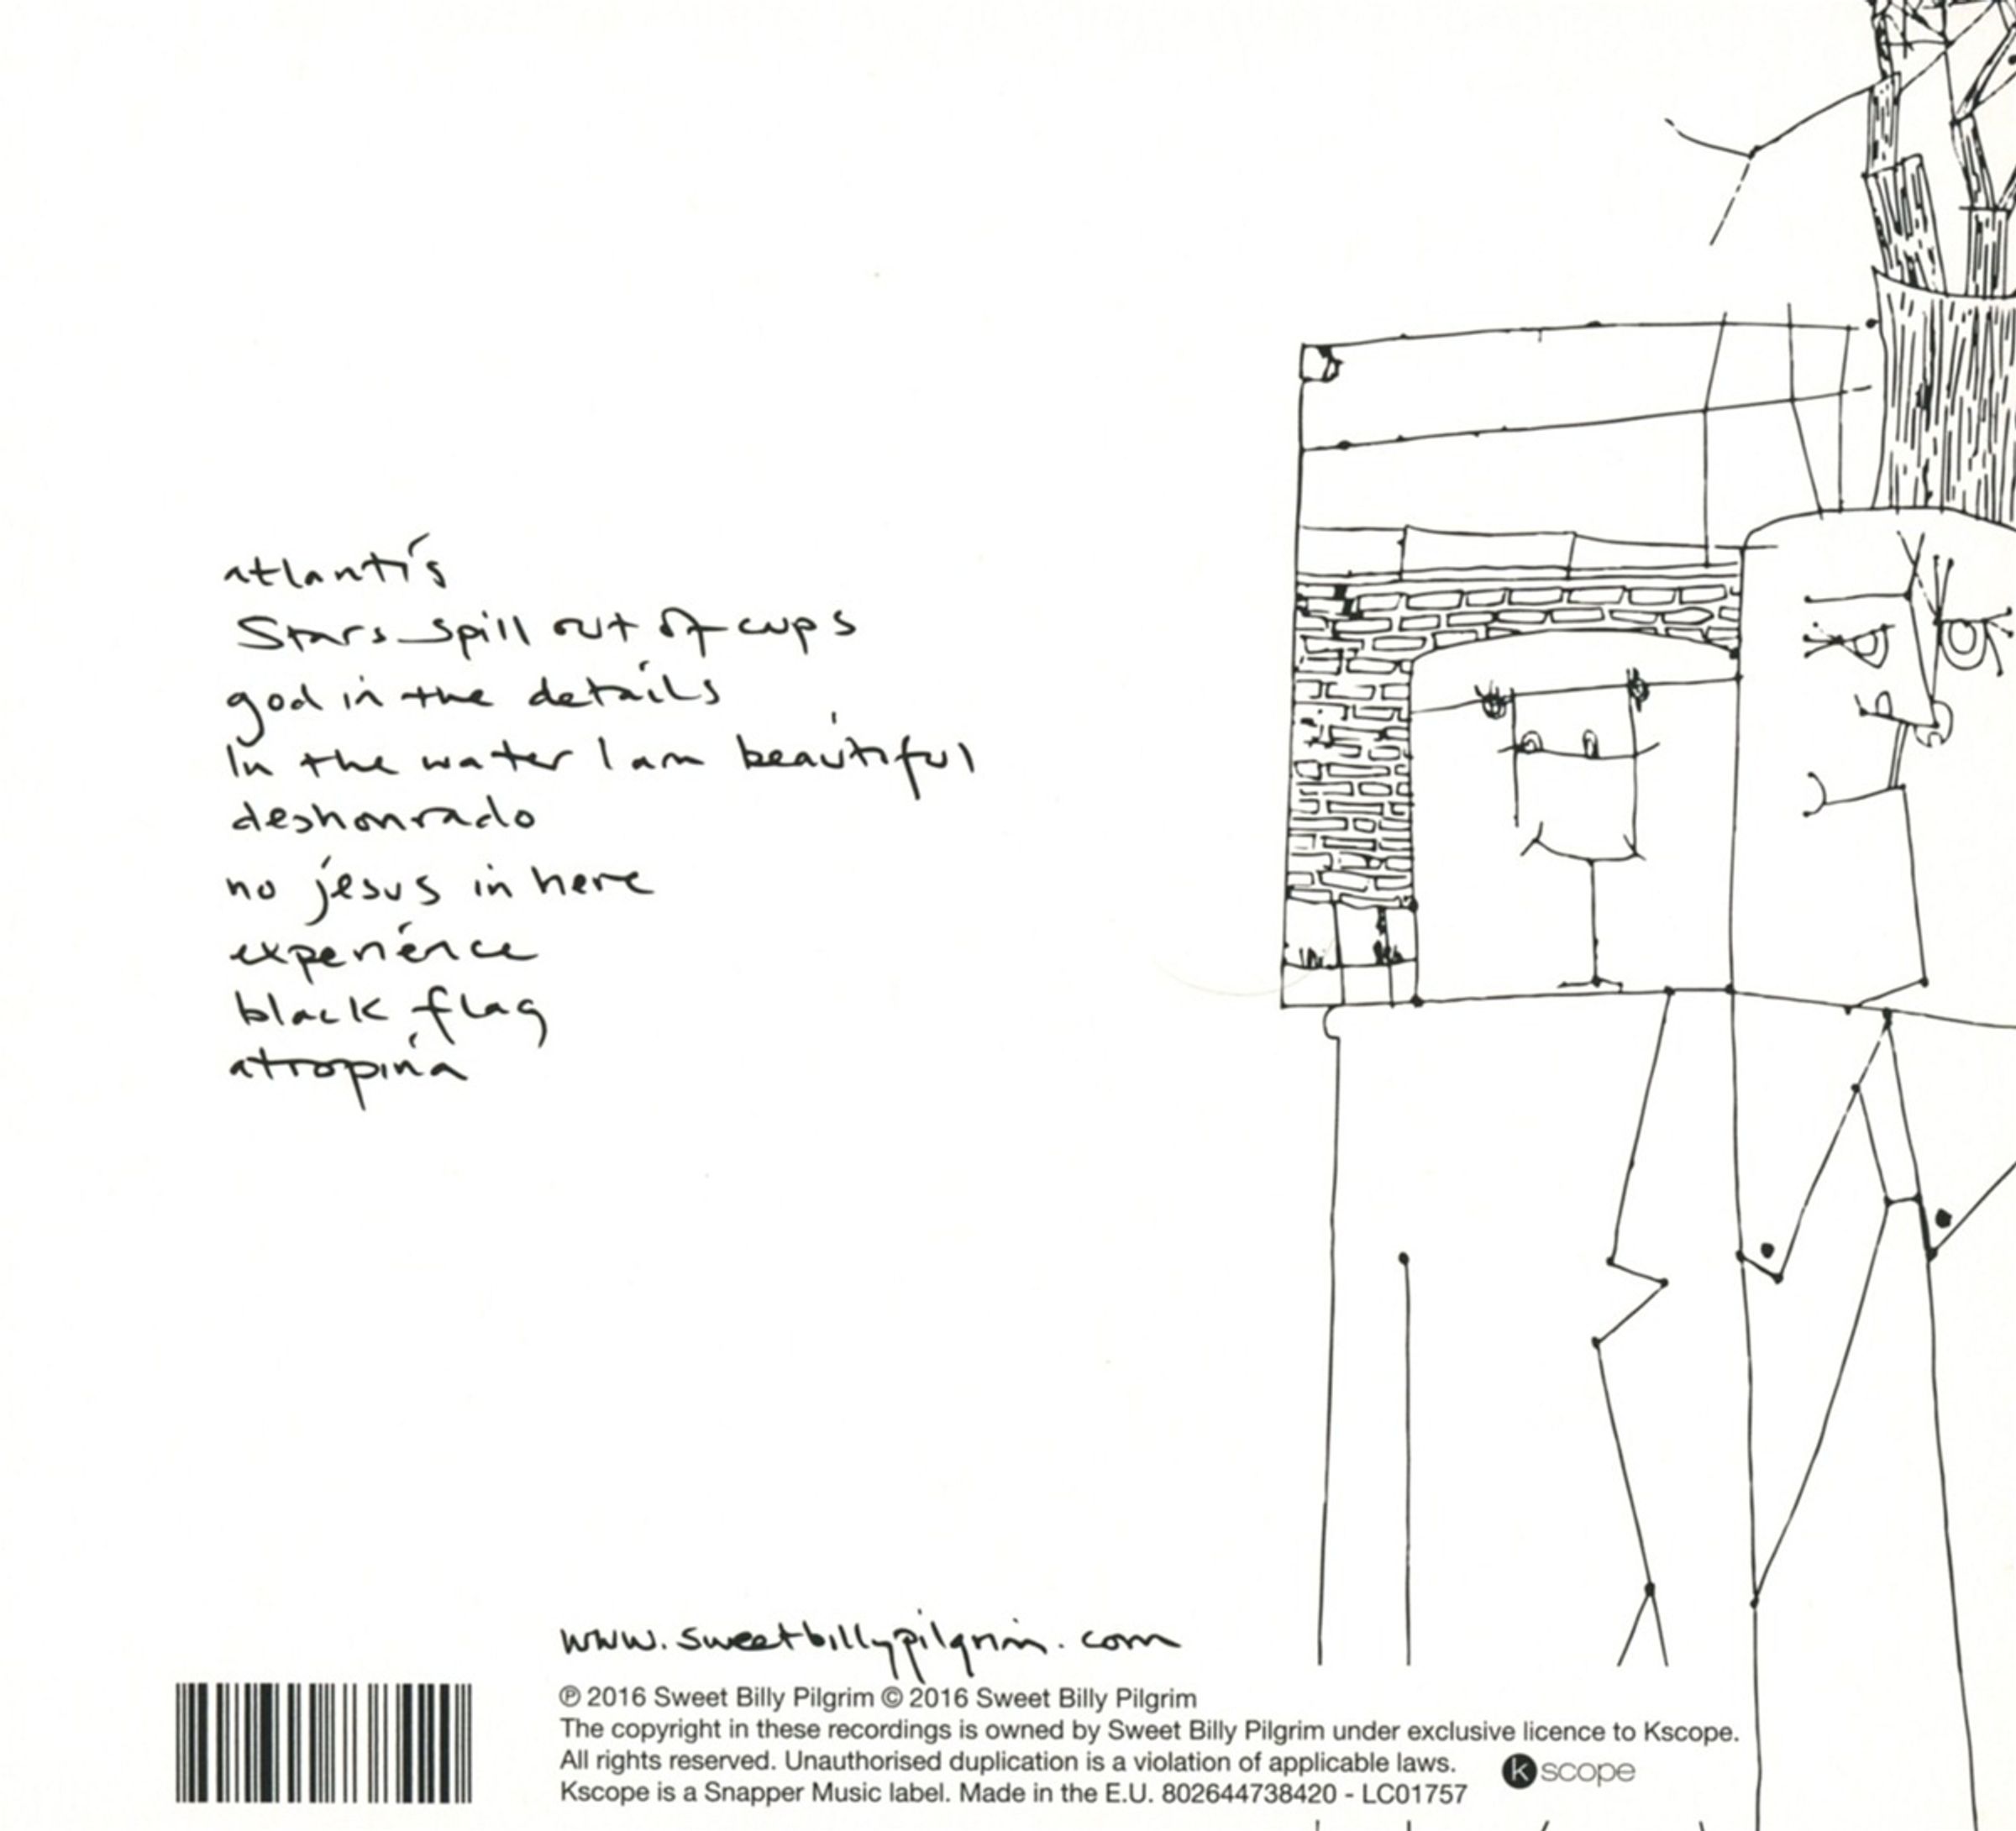 atlantis
Stars spill out of cups
god in the details
In the water I am beautiful
deshonrado
no jesus in here
experience
black flag
atropina
www.sweetbillypilgrim.com
℗ 2016 Sweet Billy Pilgrim © 2016 Sweet Billy Pilgrim
The copyright in these recordings is owned by Sweet Billy Pilgrim under exclusive licence to Kscope.
All rights reserved. Unauthorised duplication is a violation of applicable laws.
Kscope is a Snapper Music label. Made in the E.U. 802644738420 - LC01757
kscope